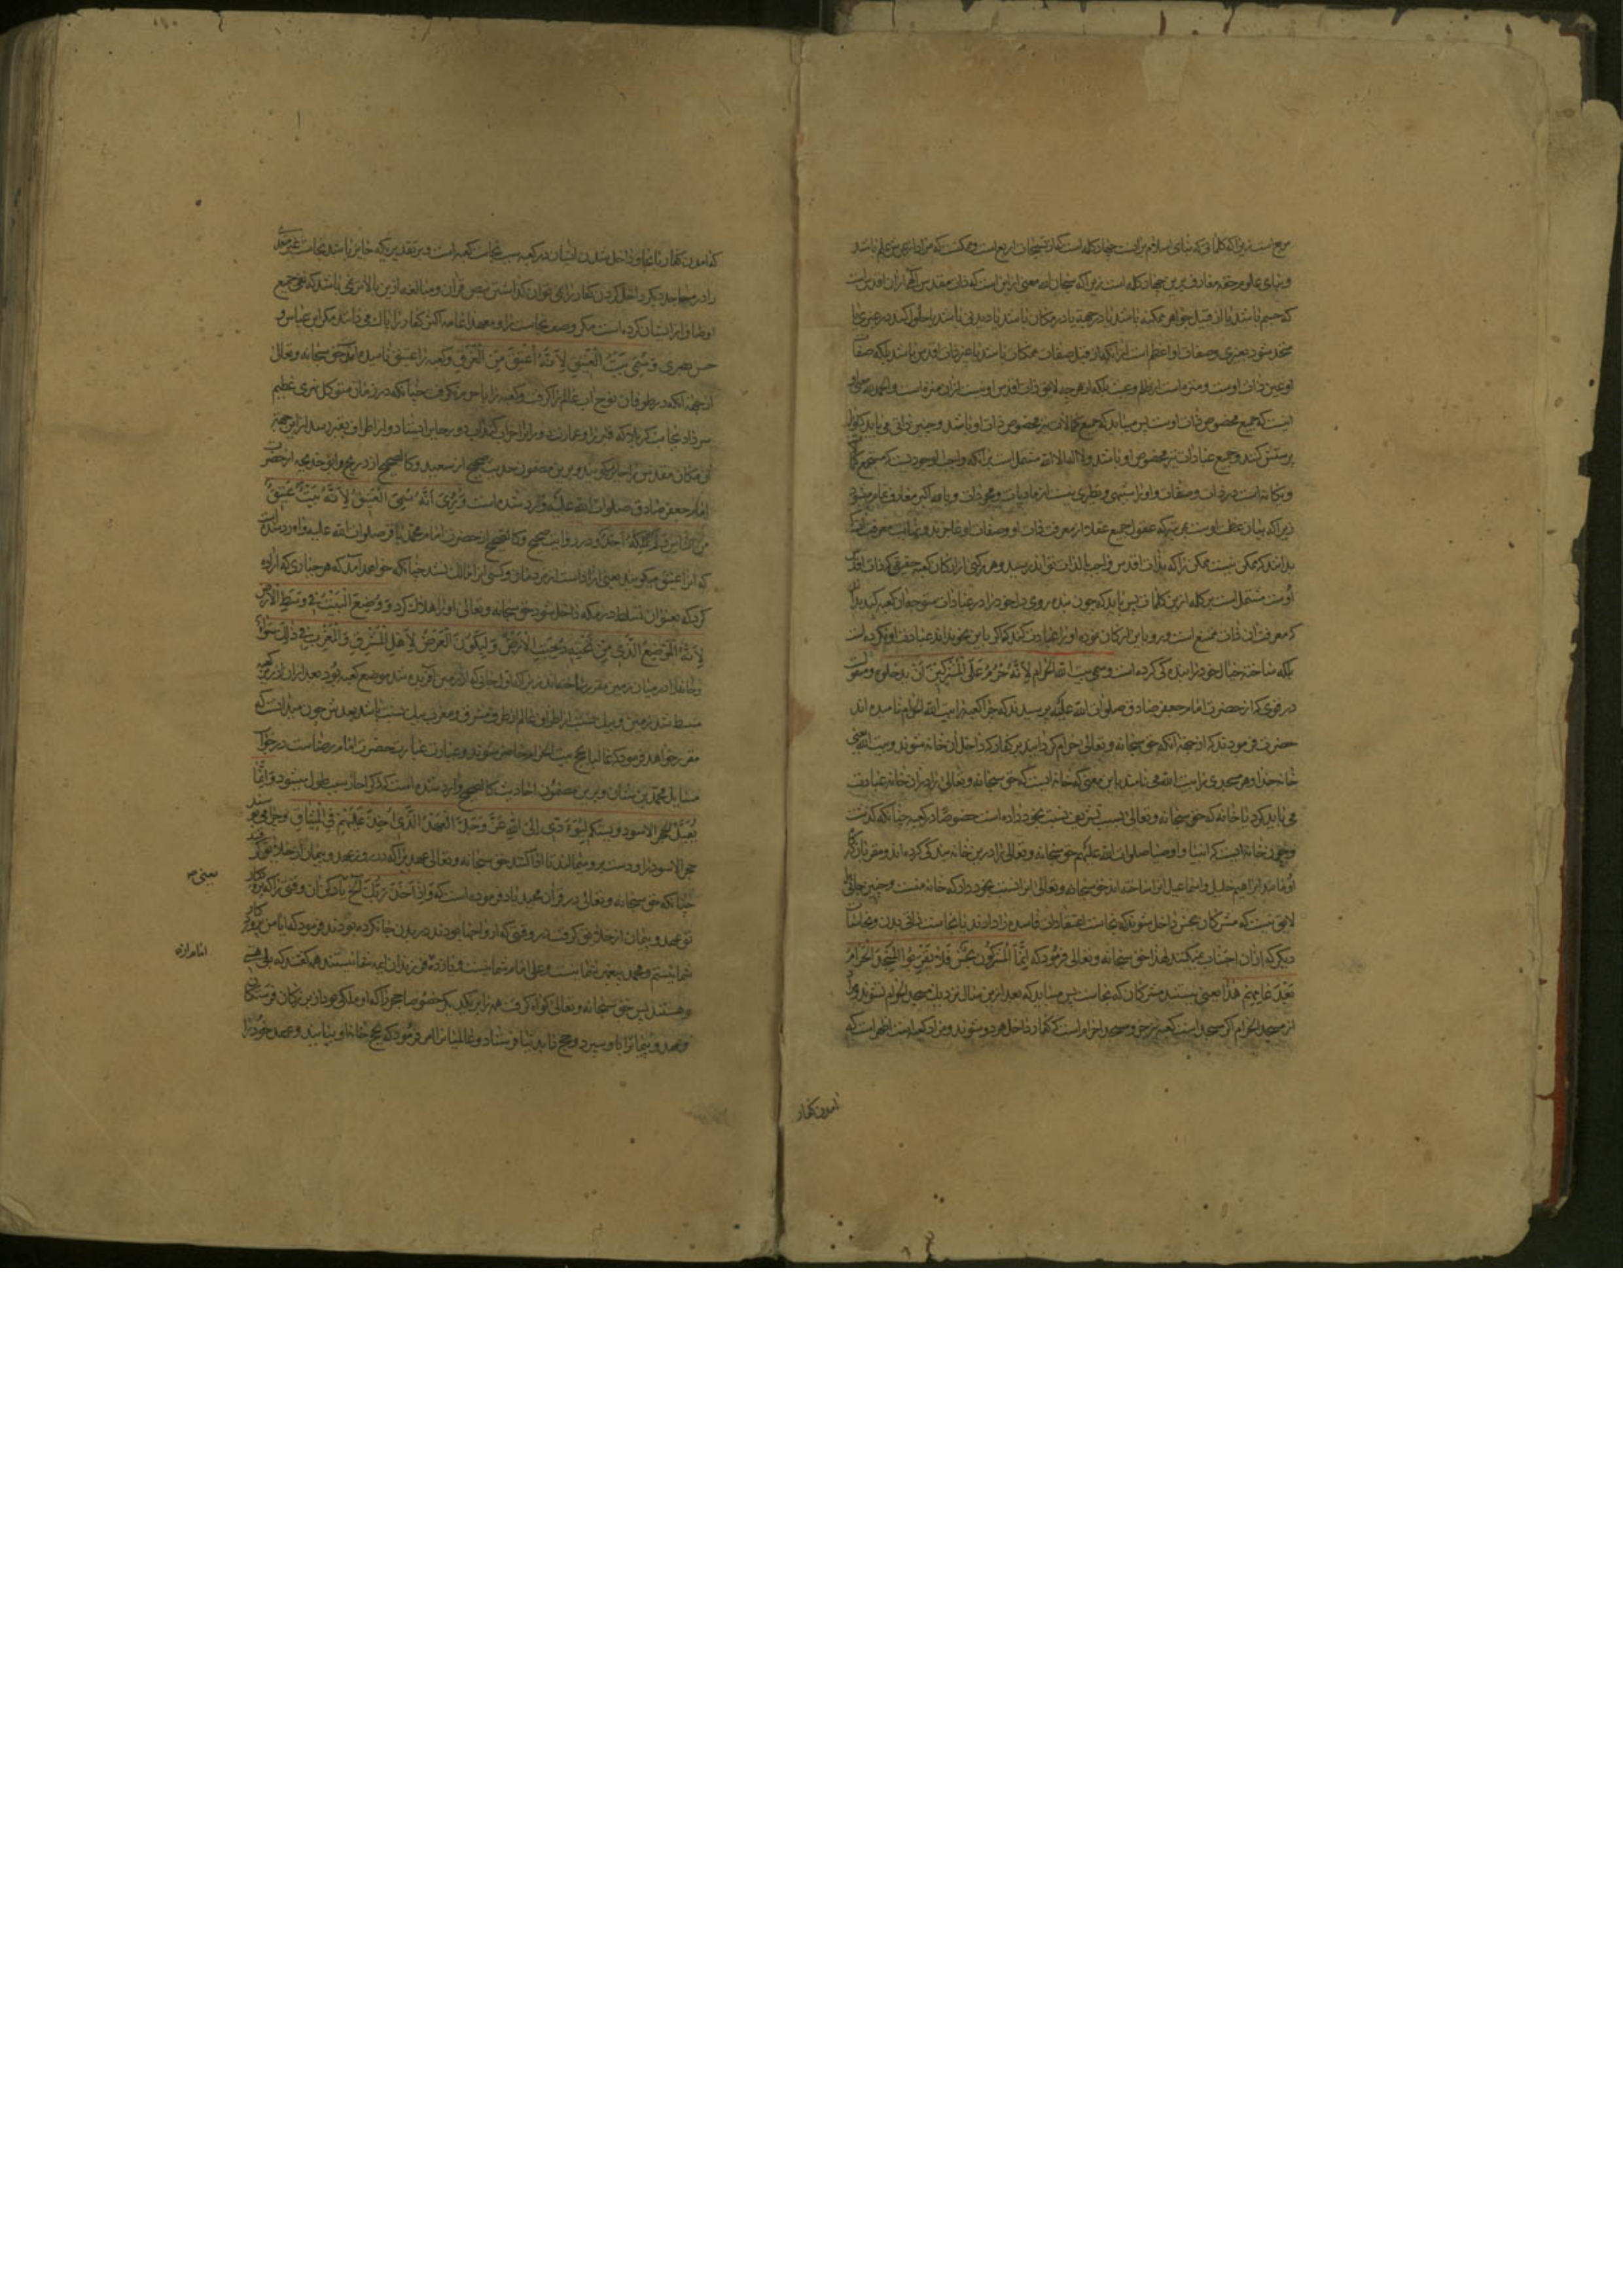 مربع است زیرا که کلماتی که بنای اسلام بر آنست چهار کلمه است که آن تسبیحات اربع است و ممکنست که مراد از عرش علم باشد
و بنای علوم حقه معارف برین چهار کلمه است زیرا که سبحان الله معنی آن این است که ذات مقدس الهی از آن اقدس است
که جسم باشد یا از قبیل جواهر ممکنه باشد یا در جهة یا در مکان باشد یا دیدنی باشد یا حلول کند در غیری یا
متحد شود بغیری و صفات او اعظم است از آنکه از قبیل صفات ممکنات باشد یا غیر ذات اقدس باشد بلکه صفات
او عین ذات اوست و منزه است از ظلم و عبث بلکه از هر چه لایق ذات اقدس او نیست از آن منزه است و الحمد لله معنی او
اینست که جمیع مخصوص ذات اوست پس میباید که جمیع کمالات نیز مخصوص ذات او باشد و چنین ذاتی می باید که او را
پرستش کنند و جمیع عبادات نیز مخصوص او باشد و لا اله الا الله مشتمل است بر آنکه واجب الوجودیست که مستجمع کمالات
و یگانه است در ذات و صفات و او را شبیهی و نظیری نیست از مادیات و مجردات و با الله اکبر معارف تمام میشود
زیرا که بیان عظمت اوست بمرتبه که عقول جمیع عقلا از معرفت ذات او و صفات او عاجزند و نهایت معرفت آنست
بدانند که ممکن نیست ممکن را که بذات اقدس واجب بالذات تواند رسید و هر رکنی از ارکان کعبه حقیقی که ذات اقدس
اوست مشتمل است بر کلمه ازین کلمات پس باید که چون بنده روی دل خود را در عبادات متوجه آن کعبه کند بداند
که معرفت آن ذات ممتنع است و رو باین ارکان نموده او را عبادت کند که اگر باین نحو نداند عبادت او نکرده است
بلکه ساخته خیال خود را بندگی کرده است و سمی بیت الله الحرام لانه حرم علی المشرکین ان یدخلوه و منقولست
در قوی که از حضرت امام جعفر صادق صلوات الله علیه پرسیدند که چرا کعبه را بیت الله الحرام نامیده اند
حضرت فرمودند که از جهة آنکه حق سبحانه و تعالی حرام گردانید بر کفار که داخل آن خانه شوند و بیت الله یعنی
خانه خدا و هر مسجدی را بیت الله می نامند باین معنی که خانه ایست که حق سبحانه و تعالی را در آن خانه عبادت
می باید کرد یا خانه که حق سبحانه و تعالی بسبب تشریف نسبت بخود داده است خصوصا در کعبه چنانکه گذشت
و چون خانه ایست که انبیا و اوصیا صلوات الله علیهم حق سبحانه و تعالی را درین خانه بندگی کرده اند و مقربان
او مانند ابراهیم خلیل و اسماعیل آنرا ساخته اند حق سبحانه و تعالی آنرا نسبت بخود داد که خانه منست و چنین جائی
لایق نیست که مشرکان نجس داخل شوند که نجاست اعتقادات فاسده را دارند با نجاست ذاتی بدن و نجاسات
دیگر که از آن اجتناب نمیکنند لهذا حق سبحانه و تعالی فرمود که انما المشرکون نجس فلا یقربوا المسجد الحرام
بعد عامهم هذا یعنی نیستند مشرکان مگر نجاست پس میباید که بعد ازین سال نزدیک مسجد الحرام نشوند و مراد
از مسجد الحرام اگر مسجد است کعبه نیز جزو مسجد الحرام است که کفار داخل هر دو نشوند و مراد کعبه است اظهر است که
آمدن کفار
که آمدن کفار داخل شدن ایشان در کعبه سبب نجاست کعبه است و بر تقدیری که جایز باشد نجاست غیر متعدی
را در مساجد دیگر داخل کردن کفار را نمی توان گذاشتن بنص قرآن و مبالغه ازین بالاتر نمی باشد که نفی جمیع
اوصاف از ایشان کرده است مگر وصف نجاست را و معهذا عامه اکثر کفار را پاک می دانند مگر ابن عباس و
حسن بصری و سمی بیت العتیق لانه اعتق من الغرق و کعبه را عتیق نامیده اند که حق سبحانه و تعالی
از جهة آنکه در طوفان نوح آب عالم را گرفت و کعبه را یا حرم را نگرفت چنانکه در زمان متوکل نهری عظیم
سر داد بجانب کربلا که قبر را و عمارت و را خراب کند آب دور حایر ایستاد و از اطراف بقبر نرسید از این جهة
آن مکان مقدس را حایر گویند و برین مضمون حدیث صحیح از سعید و کالصحیح از ذریح و ابو خدیجه از حضرت
امام جعفر صادق صلوات الله علیه وارد شده است و روی انه سمی العتیق لانه بیت عتیق
من الناس و لم یملکه احد و در روایت صحیح و کالصحیح از حضرت امام محمد باقر صلوات الله علیه وارد شده است
که آنرا عتیق میگویند یعنی آزاد است از مردمان و کسی آنرا مالک نشد چنانکه خواهد آمد که هر جباری که اراده
کرد که بعنوان تسلط در مکه داخل شود حق سبحانه و تعالی او را هلاک کرد و وضع البیت فی وسط الارض
لانه الموضع الذی من تحته دحیت الارض و لیکون الفرض لاهل المشرق و المغرب فی ذلک سواء
و خانه را در میان زمین مقرر ساخته اند زیرا که اول جائی که از زمین آفریده شد موضع کعبه بود بعد از آن از زیر کعبه
منبسط شد زمین و پهن شد تا از اطراف عالم از طرف مشرق و مغرب بیک نسبت باشد بعدش چون میدانست که
مقرر خواهد فرمود که عالمیان بحج بیت الحرام حاضر شوند و عبارت عبارت حضرت امام رضاست در جواب
مسایل محمد بن سنان و برین مضمون احادیث کالصحیح وارد شده است که ذکر آنها سبب طول میشود و انما
یقبل الحجر الاسود و یستلم لیؤدی الی الله عز و جل العهد الذی اخذ علیهم فی المیثاق و جز این نیست می بوسند
حجر الاسود را و دست بر و میمالند تا ادا کنند حق سبحانه و تعالی عهدی را که در روز عهد و پیمان از خلایق گرفت
چنانکه حق سبحانه و تعالی در قرآن مجید یاد فرموده است که و اذ اخذ ربک الخ یاد کن آن وقتی را که پروردگار
تو عهد و پیمان از خلایق گرفت در وقتی که ارواح ما بودند در بدن چنانکه بودند فرمود که آیا من پروردگار
شما نیستم و محمد پیغمبر شما نیست و علی امام شما نیست و یازده فرزندان ایمه شما نیستند همه گفتند که بلی هستی
و هستند پس حق سبحانه و تعالی گواه گرفت همه را بر یکدیگر خصوصا حجر را که او ملکی بود از بزرگان فرشتگان
و عهد و پیمانرا باو سپرد و حجج را بدنیا فرستاد و عالمیانرا امر فرمود که بحج خانه او بیایند و عهد خود را
یعنی
امام از